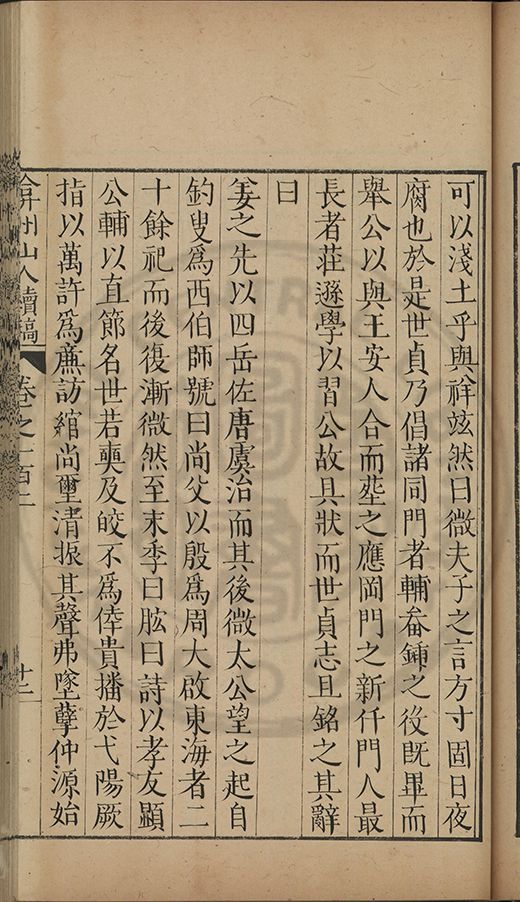 可以淺土乎與祥竑然曰微夫子之言方寸固日夜
腐也於是世貞乃倡諸同門者輔畚鍤之役旣畢而
舉公以與王安人合而塟之應岡門之新仟門人最
長者莊遜學以習公故具狀而世貞志且銘之其辭
曰
姜之先以四岳佐唐虞治而其後微太公望之起自
釣叟爲西伯師號曰尚父以殷爲周大啟東海者二
十餘祀而後復漸微然至末季曰肱曰詩以孝友顯
公輔以直節名世若奭及皎不爲倖貴播於弋陽厥
指以萬許爲薦訪綰尚璽清振其聲弗墜孽仲源始
弇州山人續稿 卷之一百二 十二